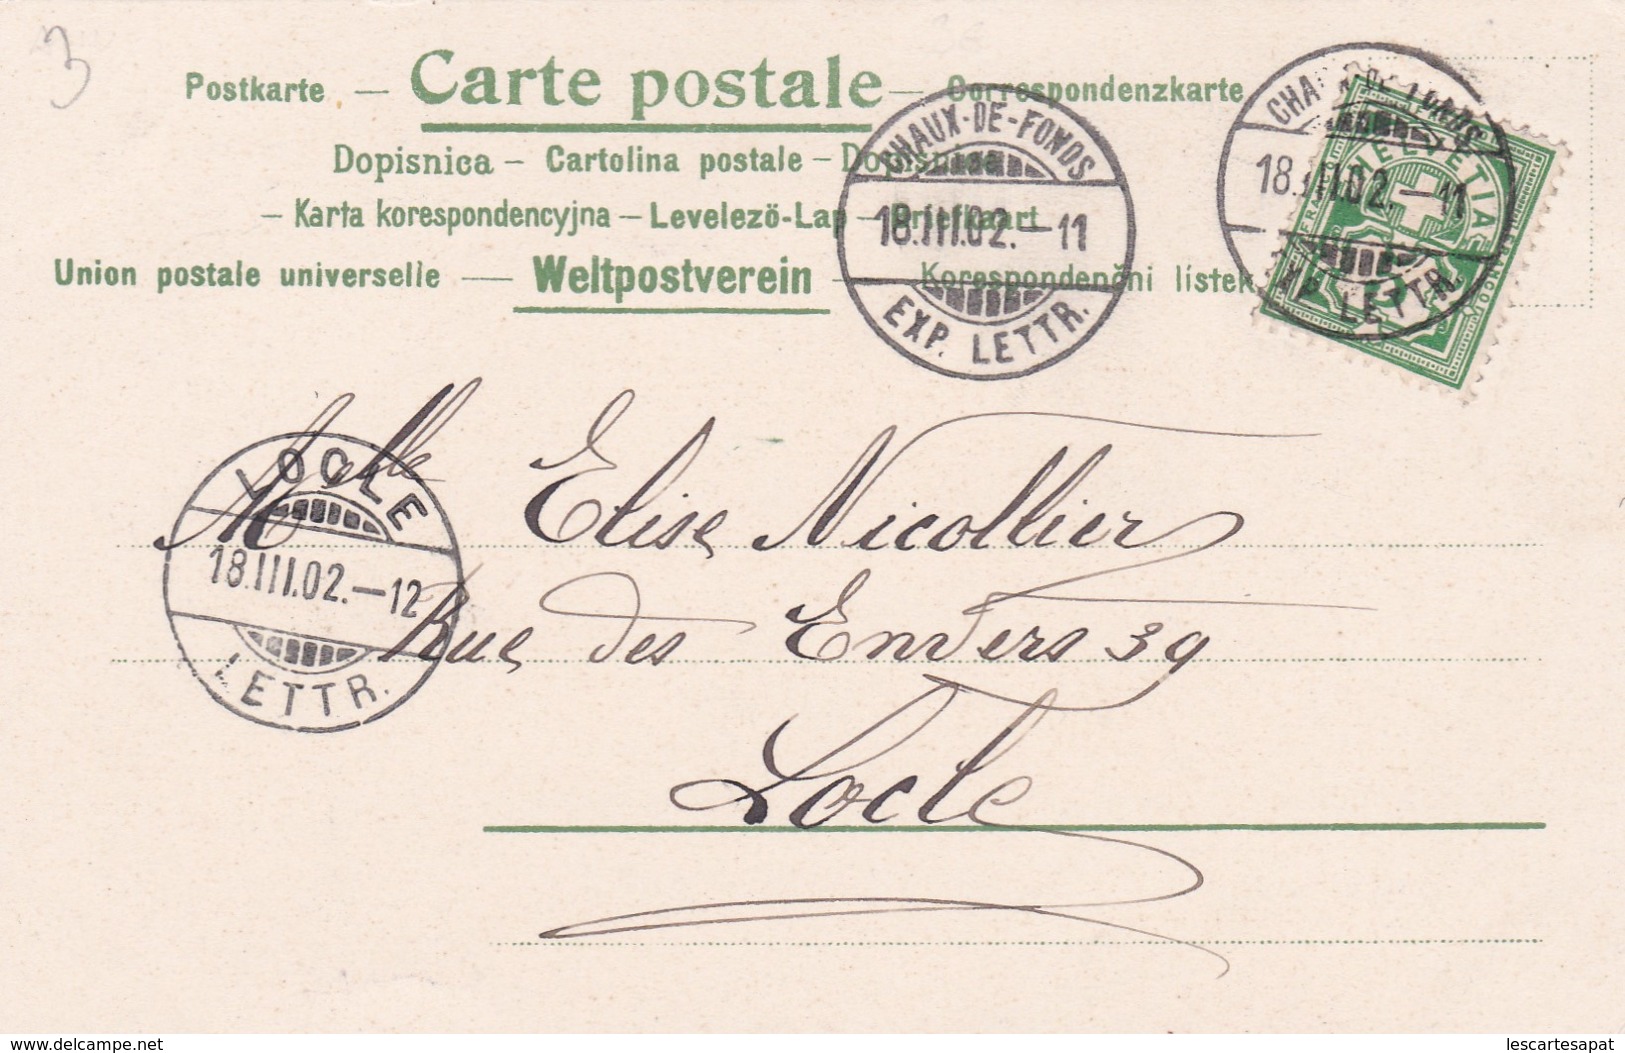 3
Postkarte — Carte postale — Correspondenzkarte
Dopisnica – Cartolina postale – Dopisnica
– Karta korespondencyjna – Levelező-Lap – Briefkaart
Union postale universelle — Weltpostverein — Korespondenčni lístek
CHAUX-DE-FONDS
18.III.02.–11
EXP. LETTR.
CHAUX-DE-FONDS
18.III.02.–11
EXP. LETTR.
HELVETIA
FRANCO
LOCLE
18.III.02.–12
LETTR.
Melle Elise Nicollier
Rue des Envers 39
Locle
www.delcampe.net
lescartesapat